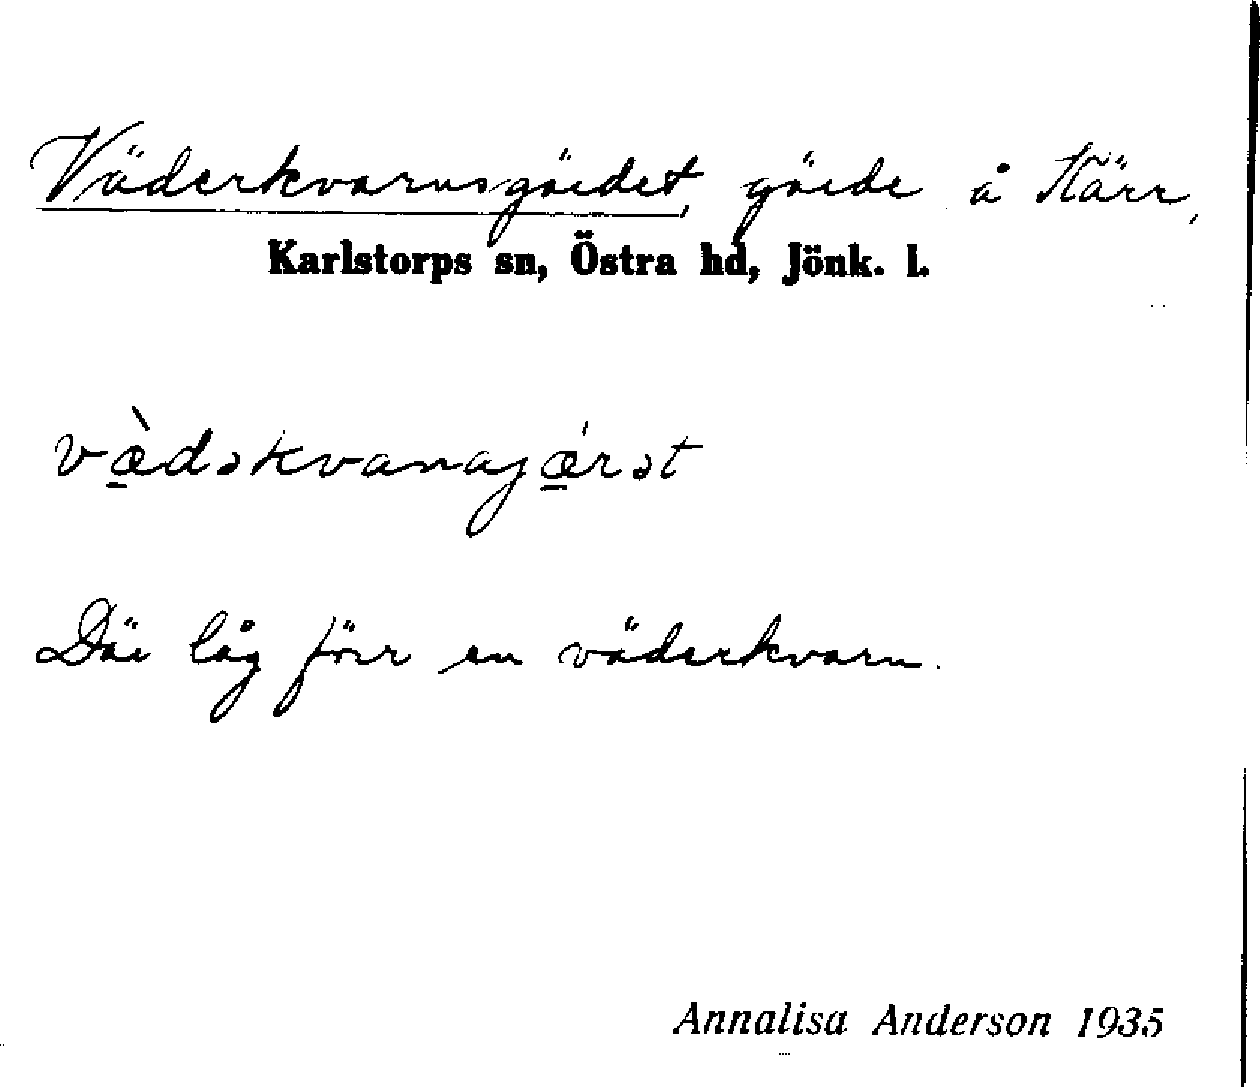 Väderkvarnsgärdet, gärde å Kärr,
Karlstorps sn, Östra hd, Jönk. l.
væ̀dəkvanajǽrət
Där låg förr en väderkvarn.
Annalisa Anderson 1935